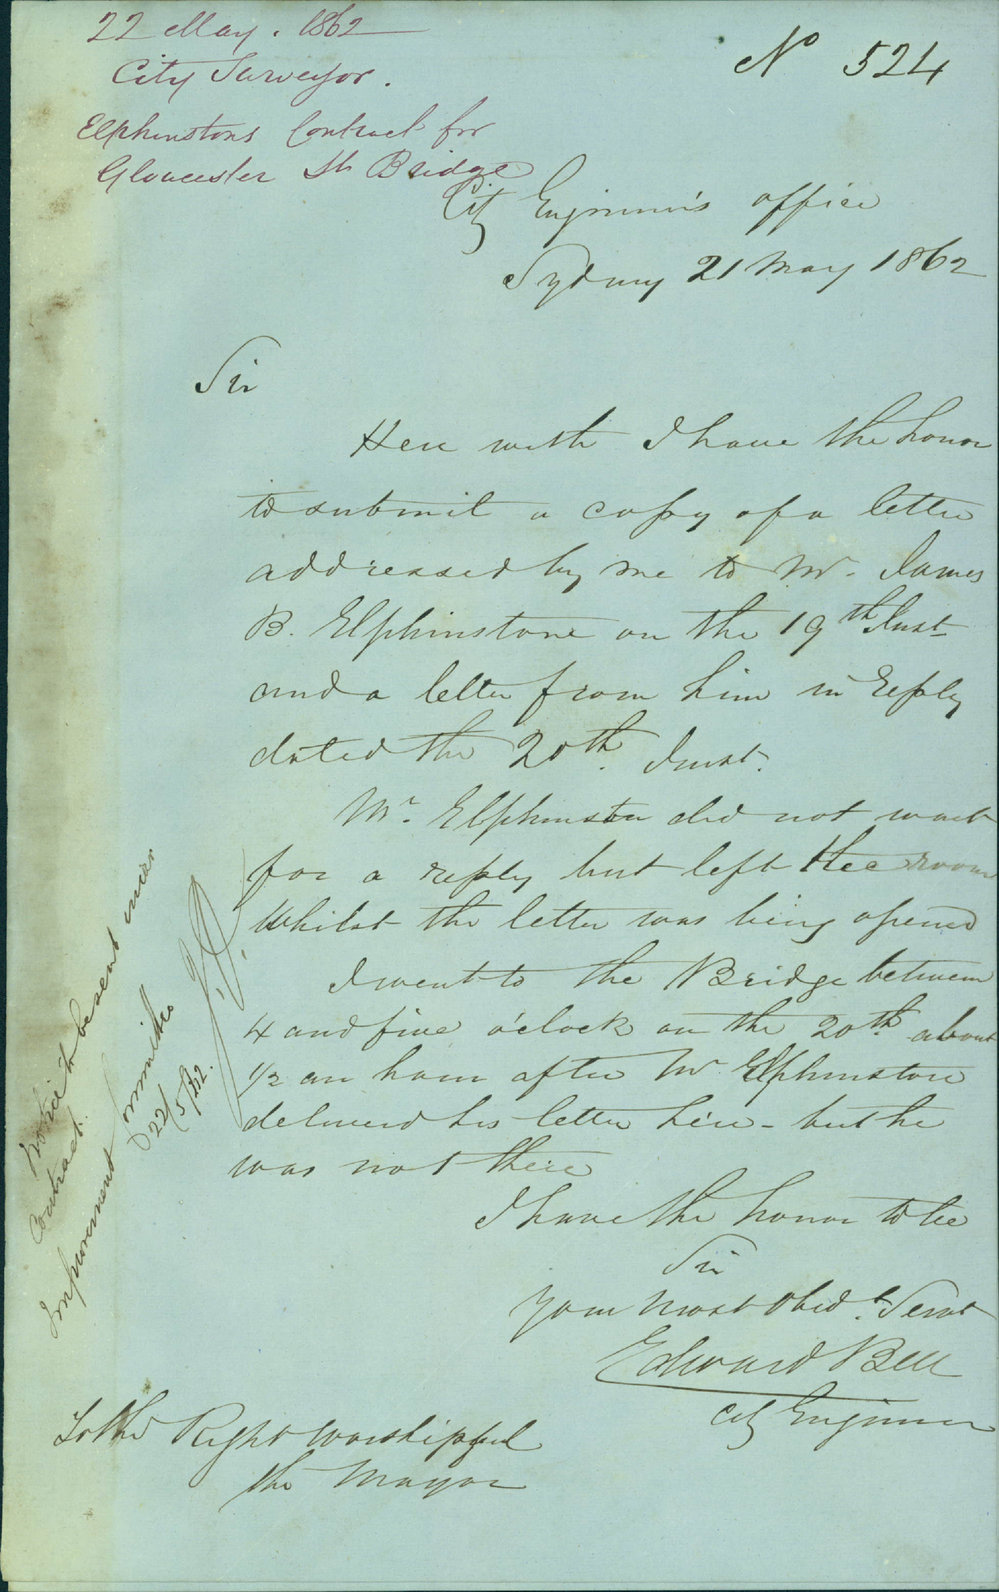 22 May. 1862
City Surveyor.
Elphinstons Contract for
Gloucester St Bridge
No 524
City Engineer's office
Sydney 21 May 1862
Sir
Here with I have the honor
to submit a copy of a letter
addressed by me to Mr. James
B. Elphinstone on the 19th Inst
and a letter from him in reply
dated the 20th. Inst.
Mr. Elphinston did not wait
for a reply but left the room
Whilst the letter was being opened
I went to the Bridge between
4 and five o'clock on the 20th about
1/2 an hour after Mr Elphinstone
delivered his letter here - but he
was not there
I have the honor to be
Sir
Your Most Obedt. Servt
Edward Bell
City Engineer
To the Right Worshipful
the Mayor
Notice to be sent under
Contract.
Improvement Committee
22/5/62.